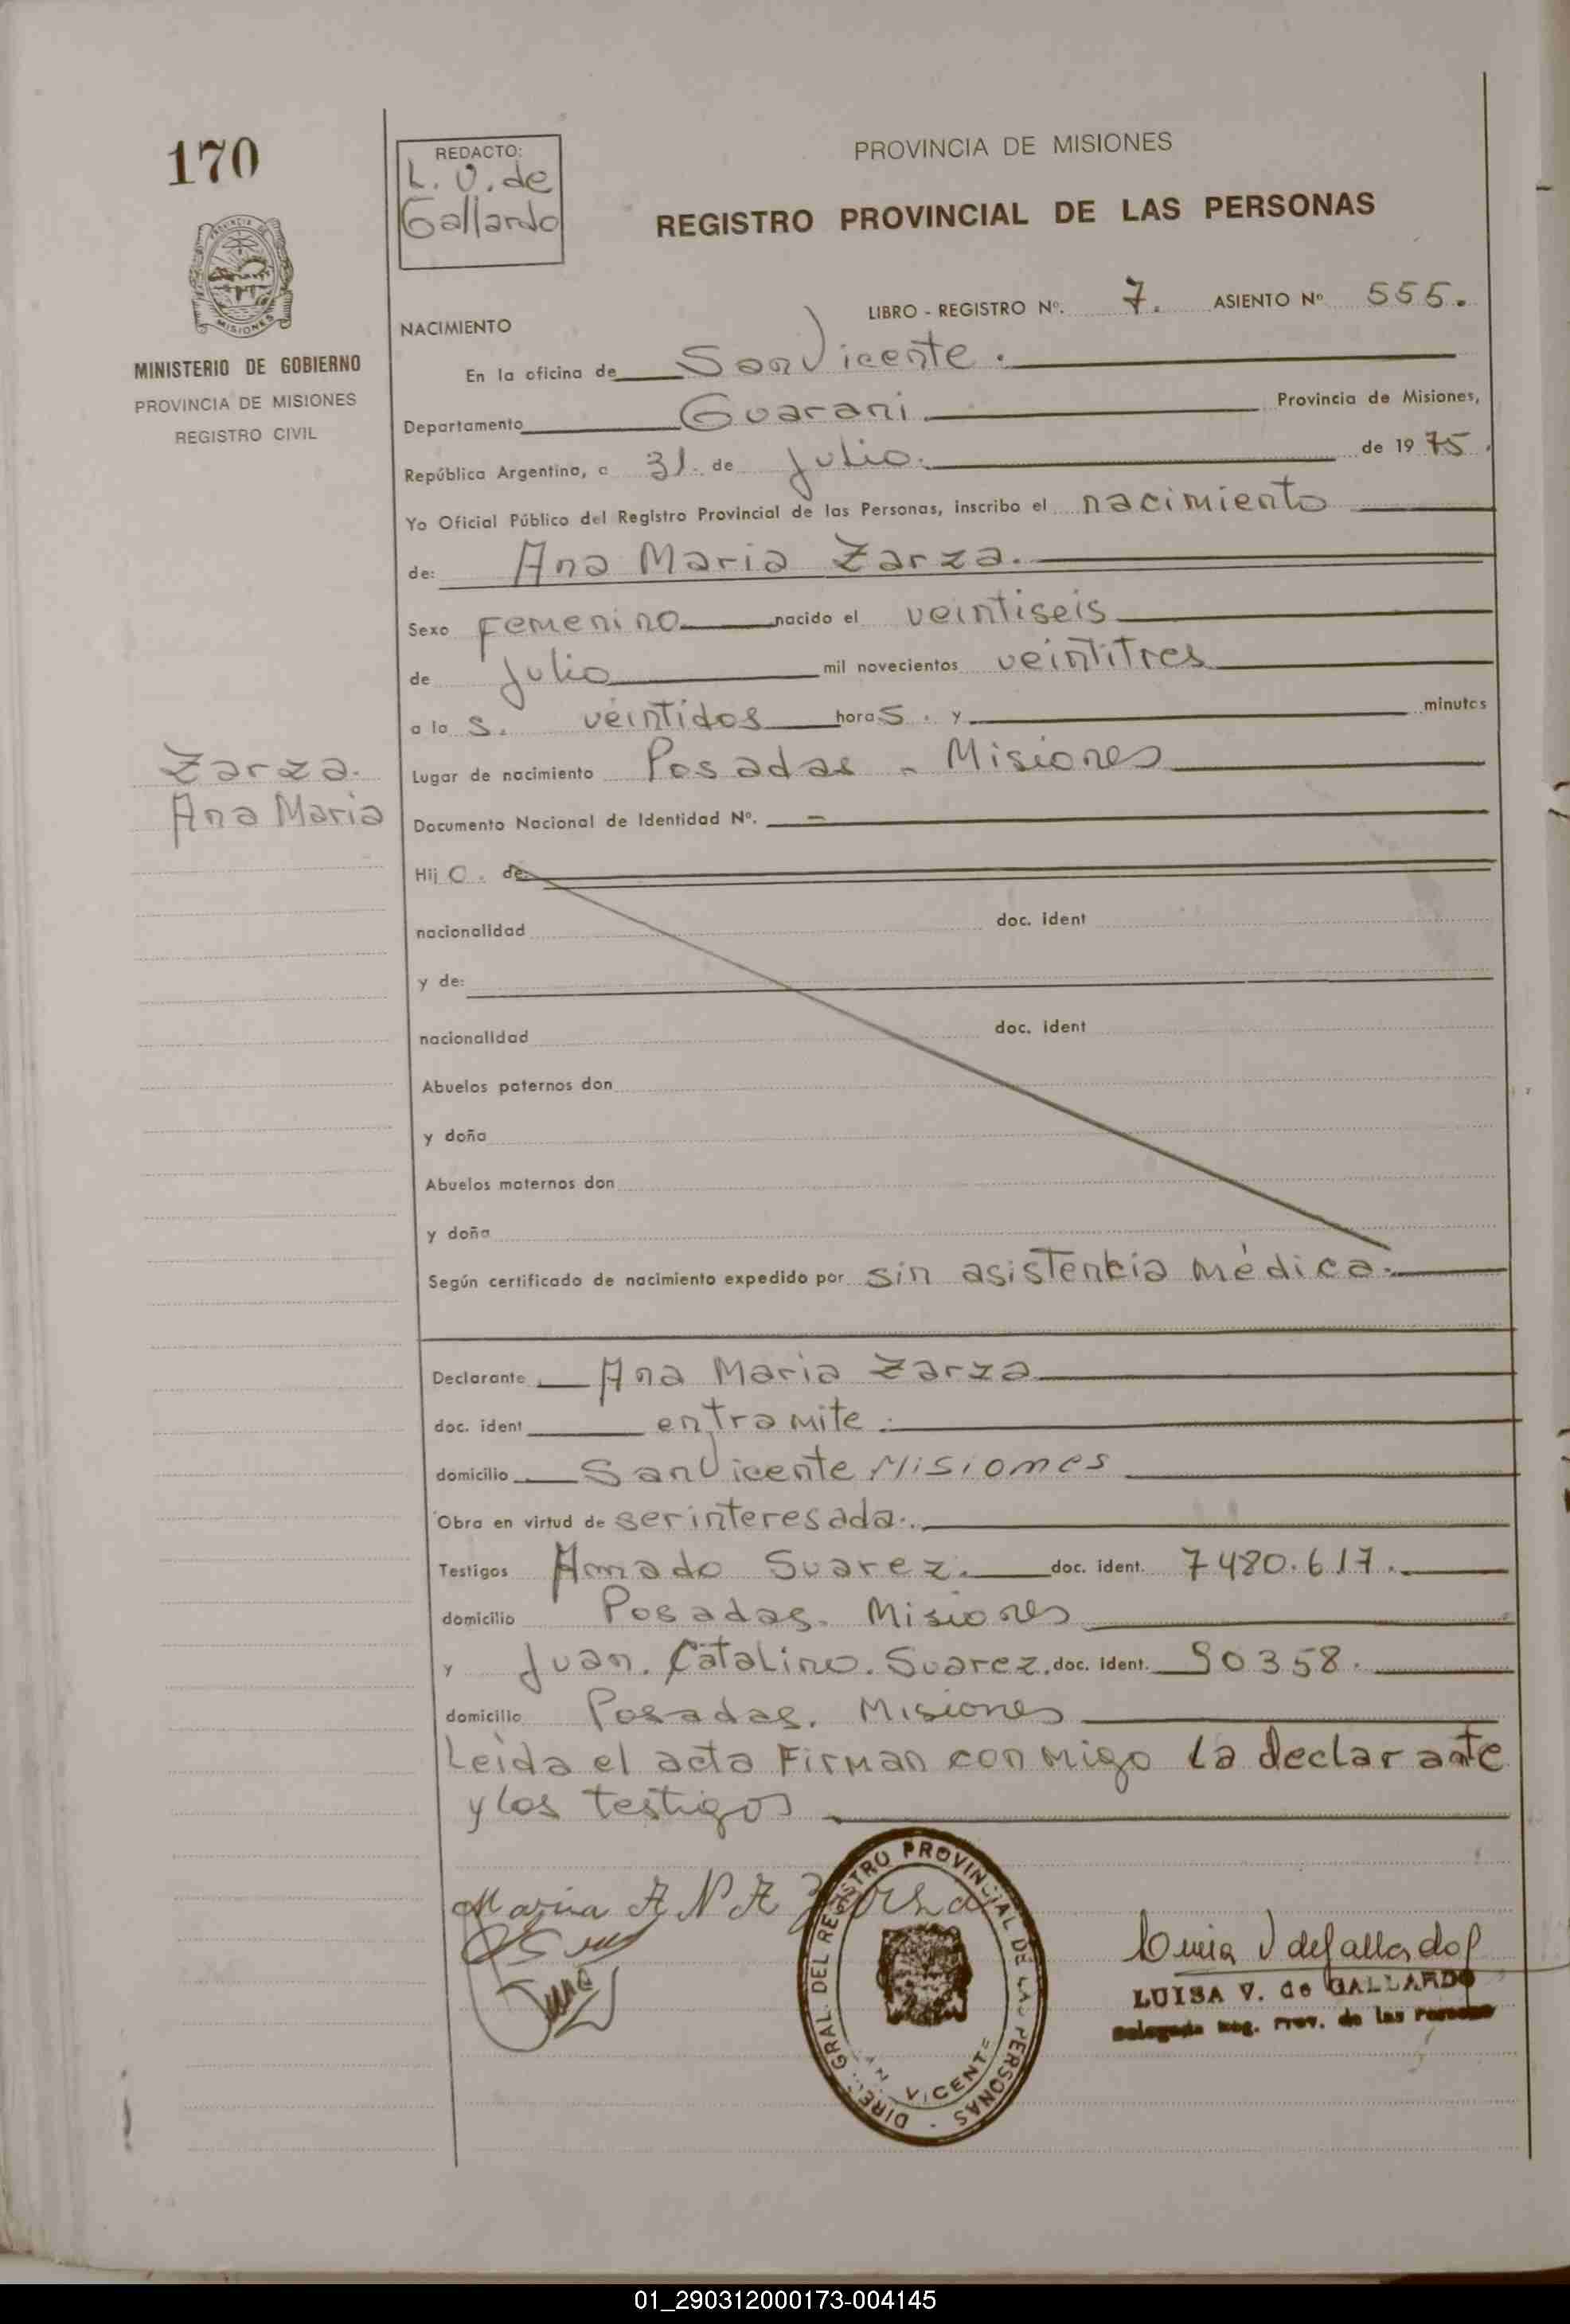 170
REDACTO:
L. V. de
Gallardo
PROVINCIA DE MISIONES
REGISTRO PROVINCIAL DE LAS PERSONAS
MISIONES
MINISTERIO DE GOBIERNO
PROVINCIA DE MISIONES
REGISTRO CIVIL
LIBRO - REGISTRO Nº. 7. ASIENTO Nº 555.
NACIMIENTO
En la oficina de San Vicente.
Departamento Guarani Provincia de Misiones,
República Argentina, a 31. de Julio. de 1975.
Yo Oficial Público del Registro Provincial de las Personas, inscribo el nacimiento
de: Ana Maria Zarza.
Sexo Femenino nacido el veintiseis
de Julio mil novecientos veintitres
a las. veintidos horas. y minutos
Zarza.
Ana Maria
Lugar de nacimiento Posadas - Misiones
Documento Nacional de Identidad Nº. -
Hij o. de:
nacionalidad doc. ident
y de:
nacionalidad doc. ident
Abuelos paternos don
y doña
Abuelos maternos don
y doña
Según certificado de nacimiento expedido por sin asistencia médica.
Declarante Ana Maria Zarza
doc. ident entramite.
domicilio San Vicente Misiones
Obra en virtud de ser interesada.
Testigos Amado Suarez. doc. ident. 7480.617.
domicilio Posadas. Misiones
y Juan. Catalino. Suarez. doc. ident. 90358.
domicilio Posadas. Misiones
Leida el acta Firman conmigo la declarante
y los testigos
Maria ANA Zarza
DIREC. GRAL. DEL REGISTRO PROVINCIAL DE LAS PERSONAS
VICENTE
Luisa V de Gallardo
LUISA V. de GALLARDO
Delegada Reg. Prov. de las Personas
01_290312000173-004145